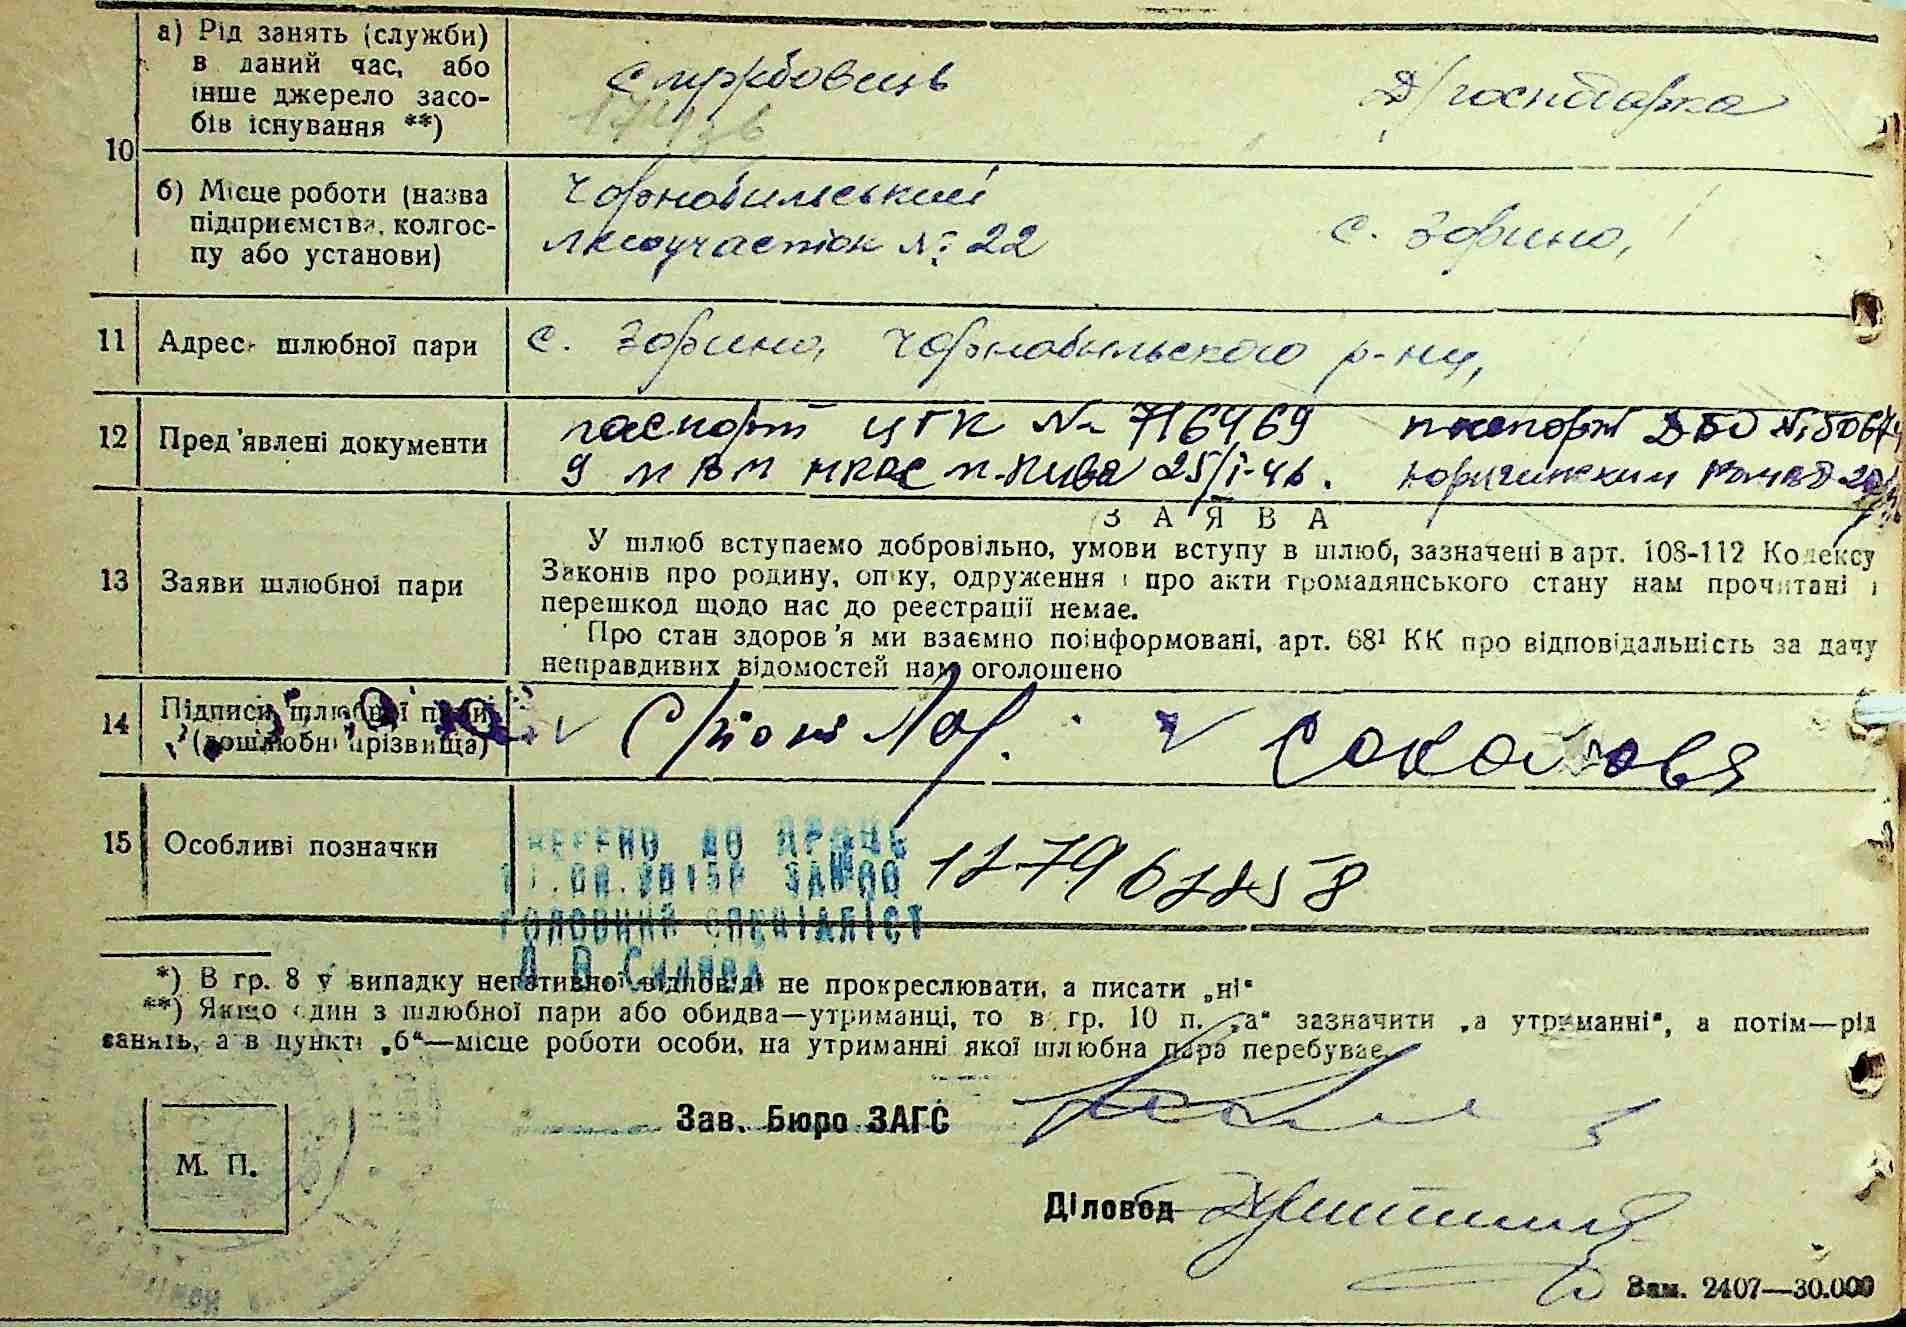 10
а) Рід занять (служби)
в даний час, або
інше джерело засо-
бів існування **)
службовець
Д/господарка
б) Місце роботи (назва
підприємства, колгос-
пу або установи)
Чорнобильський
№ 22
с. Зорино,
11 Адрес шлюбної пари
с. Зорино, Чорнобильского р-ну,
12 Пред'явлені документи
паспорт ЦГК № 716469 паспорт
9 м. Київа 25/I-46.
13 Заяви шлюбної пари
ЗАЯВА
У шлюб вступаємо добровільно, умови вступу в шлюб, зазначені в арт. 108-112 Кодексу
Законів про родину, опіку, одруження і про акти громадянського стану нам прочитані і
перешкод щодо нас до реєстрації немає.
Про стан здоров'я ми взаємно поінформовані, арт. 68¹ КК про відповідальність за дачу
неправдивих відомостей нам оголошено
14 Підписи шлюбної пари
(дошлюбні прізвища)
Соколовя
15 Особливі позначки
ДО
ГОЛОВНИЙ СПЕЦІАЛІСТ
*) В гр. 8 у випадку негативної відповіді не прокреслювати, а писати „ні“
**) Якщо один з шлюбної пари або обидва—утриманці, то в гр. 10 п. „а“ зазначити „а утриманні“, а потім—рід
занять, а в пункті „б“—місце роботи особи, на утриманні якої шлюбна пара перебуває.
Зав. Бюро ЗАГС
М. П.
Діловод
Зам. 2407—30.000